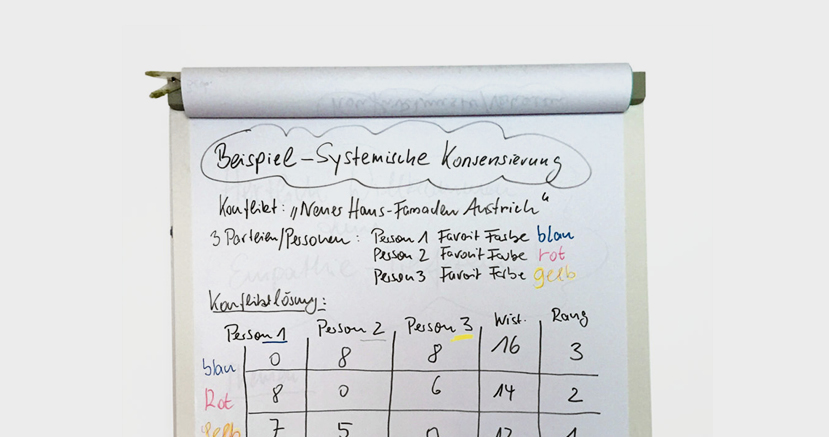 Beispiel – Systemische Konsensierung
Konflikt: „Neues Haus-Fassaden Anstrich“
3 Parteien/Personen: Person 1 Favorit Farbe blau
Person 2 Favorit Farbe rot
Person 3 Favorit Farbe gelb
Konfliktlösung:
Person 1 Person 2 Person 3 Wist. Rang
blau 0 8 8 16 3
Rot 8 0 6 14 2
gelb 7 5 0 12 1